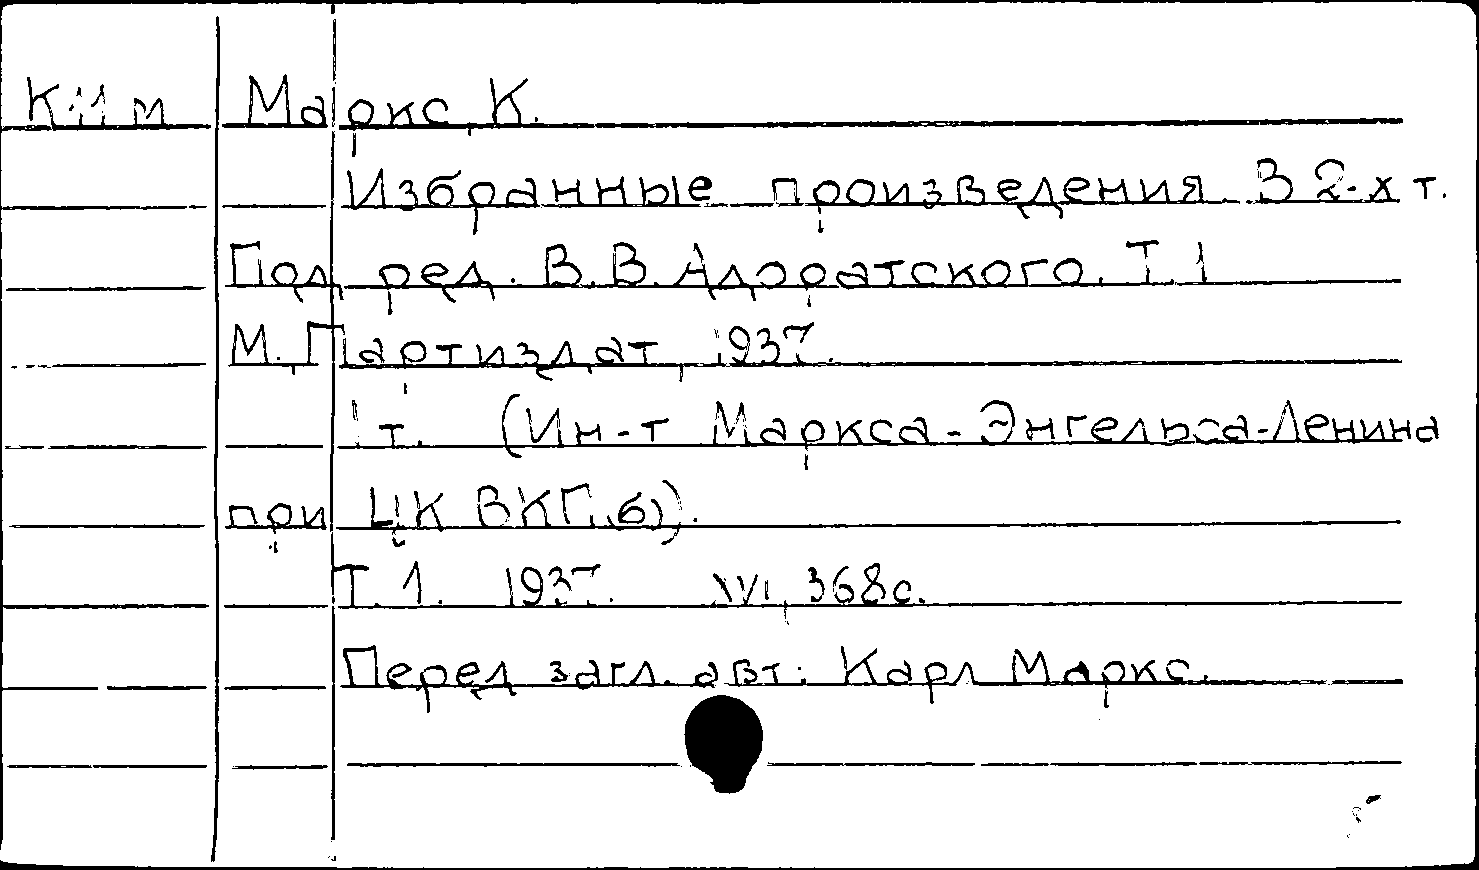 К11м Маркс, К.
Избранные произведения. В 2-х т.
Под ред. В.В. Адоратского. Т. 1
М. Партиздат, 1937.
1 т. (Ин-т Маркса-Энгельса-Ленина
при ЦК ВКП(б)).
Т. 1. 1937. XVI, 368с.
Перед загл. авт: Карл Маркс.